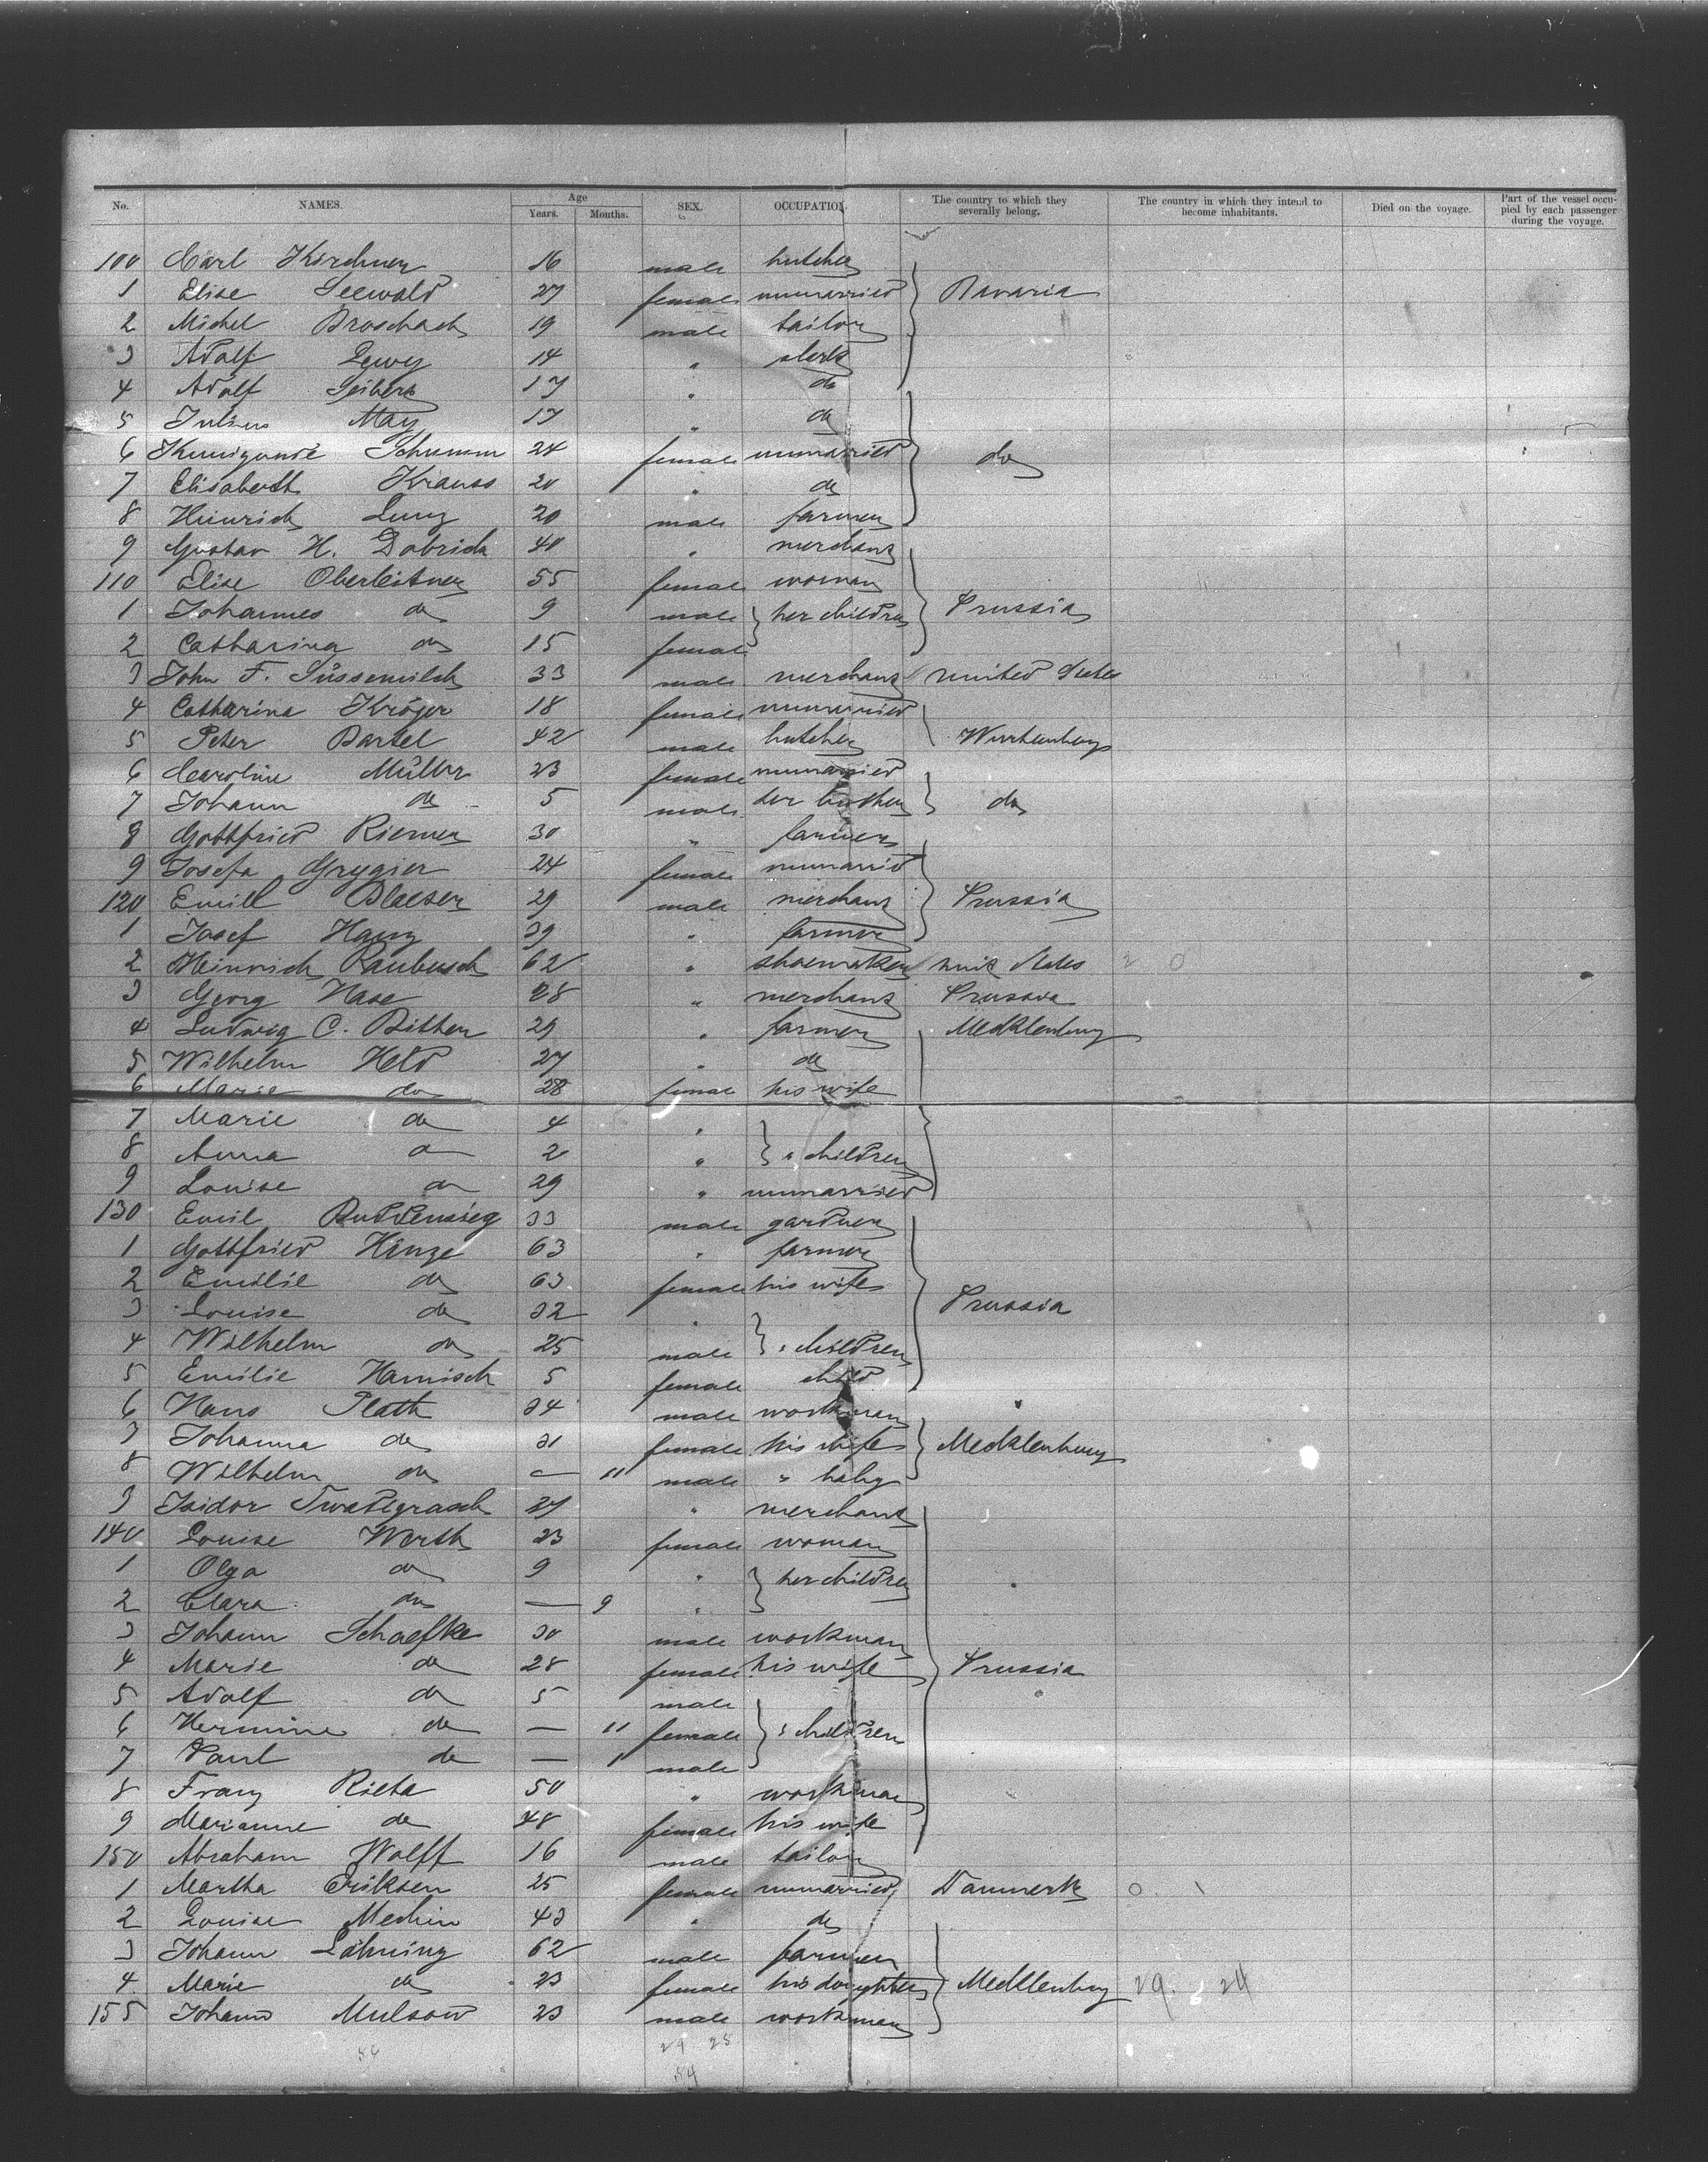 No. NAMES. Age Years. Months. SEX. OCCUPATION. The country to which they severally belong. The country in which they intend to become inhabitants. Died on the voyage. Part of the vessel occupied by each passenger during the voyage.
100 Carl Kirchner 16 male butcher
1 Elise Seewald 27 female unmarried Bavaria
2 Michel 19 male tailor
3 Adolf 14 " clerk
4 Adolf 17 " do
5 Julius May 17 " do
6 Kunigunde Schumm 24 female unmarried do
7 Elisabeth Krauss 20 " do
8 Heinrich 20 male farmer
9 Gustav H. 40 " merchant
110 Elise Oberleitner 55 female woman
1 Johannes do 9 male her children Prussia
2 Catharina do 15 female
3 John F. Süssemilch 33 male merchant united States
4 Catharina Kröger 18 female unmarried
5 Peter Bartel 42 male butcher Wurtemberg
6 Caroline Müller 23 female unmarried
7 Johann do 5 male her brother do
8 Gottfried Riemer 30 " farmer
9 Josefa Grygier 24 female unmarried
120 Emill Blaeser 29 male merchant Prussia
1 Josef 39 " farmer
2 Heinrich Raubusch 62 " shoemaker unit States
3 Georg Hase 28 " merchant Prussia
4 Ludwig C. 29 " farmer Mecklenburg
5 Wilhelm Held 27 " do
6 Marie do 28 female his wife
7 Marie do 4 "
8 Anna do 2 " " children
9 Louise do 29 " unmarried
130 Emil Buddensieg 33 male gardner
1 Gottfried Hinze 63 " farmer
2 Emilie do 63 female his wife
3 Louise do 32 " Prussia
4 Wilhelm do 25 male " children
5 Emilie 5 female child
6 Hans Plath 34 male workman
7 Johanna do 31 female his wife Mecklenburg
8 Wilhelm do — 11 male " baby
9 Isidor 27 " merchant
140 Louise Werth 23 female woman
1 Olga do 9 " her children
2 Clara do — 9 "
3 Johann Schaefke 30 male workman
4 Marie do 28 female his wife Prussia
5 Adolf do 5 male
6 Hermine do — 11 female " children
7 Paul do — 1 male
8 Franz 50 " workman
9 Marianne do 48 female his wife
150 Abraham Wolff 16 male tailor
1 Martha Eriksen 25 female unmarried Danmerk
2 Louise 43 " do
3 Johann 62 male farmer
4 Marie do 23 female his daughter Mecklenburg 29. 24
155 Johann Mulsow 23 male workman
29 25
54